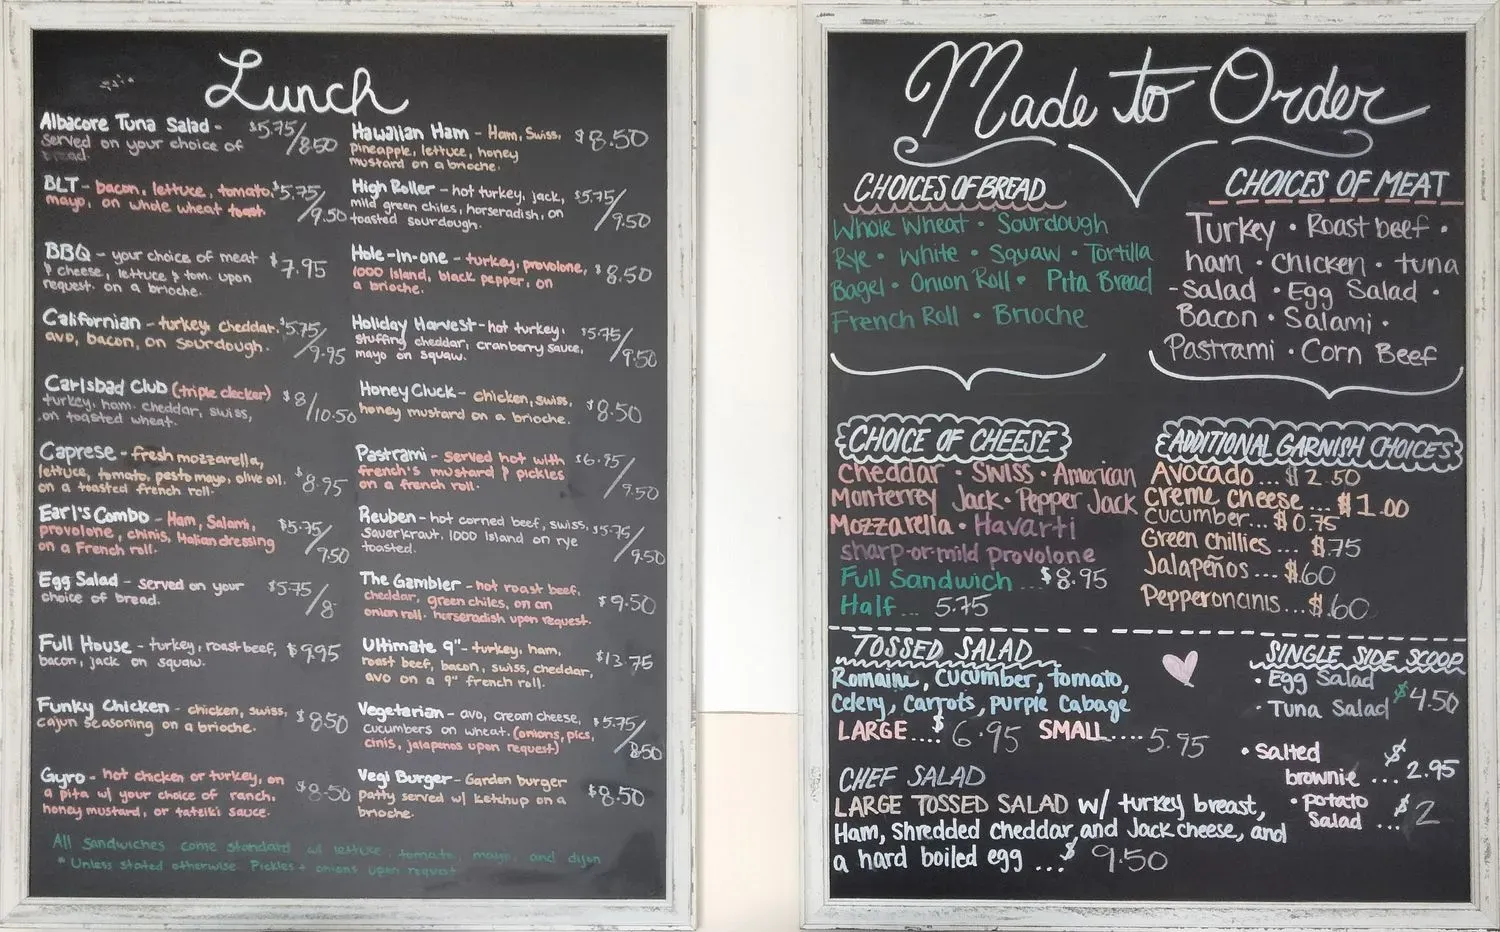 Lunch
Albacore Tuna Salad - $5.75/8.50
served on your choice of
bread.
BLT - bacon, lettuce, tomato, $5.75/9.50
mayo, on whole wheat toast.
BBQ - your choice of meat $7.95
& cheese, lettuce & tom. upon
request. on a brioche.
Californian - turkey, cheddar, $5.75/9.95
avo, bacon, on sourdough.
Carlsbad Club (triple decker) $8/10.50
turkey, ham, cheddar, swiss,
on toasted wheat.
Caprese - fresh mozzarella,
lettuce, tomato, pesto mayo, olive oil, $8.95
on a toasted french roll.
Earl's Combo - Ham, Salami, $5.75/9.50
provolone, chinis, Italian dressing
on a French roll.
Egg Salad - served on your $5.75/8
choice of bread.
Full House - turkey, roast beef, $9.95
bacon, jack on squaw.
Funky Chicken - chicken, swiss, $8.50
cajun seasoning on a brioche.
Gyro - hot chicken or turkey, on
a pita w/ your choice of ranch, $8.50
honey mustard, or tatziki sauce.
Hawaiian Ham - Ham, Swiss, $8.50
pineapple, lettuce, honey
mustard on a brioche.
High Roller - hot turkey, jack, $5.75/9.50
mild green chiles, horseradish, on
toasted sourdough.
Hole-in-one - turkey, provolone, $8.50
1000 Island, black pepper, on
a brioche.
Holiday Harvest - hot turkey, $5.75/9.50
stuffing cheddar, cranberry sauce,
mayo on squaw.
Honey Cluck - chicken, swiss, $8.50
honey mustard on a brioche.
Pastrami - served hot with $6.95/9.50
french's mustard & pickles
on a french roll.
Reuben - hot corned beef, swiss, $5.75/9.50
Sauerkraut, 1000 Island on rye
toasted.
The Gambler - hot roast beef,
cheddar, green chiles, on an $9.50
onion roll. horseradish upon request.
Ultimate 9" - turkey, ham, $13.75
roast beef, bacon, swiss, cheddar,
avo on a 9" french roll.
Vegetarian - avo, cream cheese, $5.75/8.50
cucumbers on wheat. (onions, pics,
cinis, jalapenos upon request)
Vegi Burger - Garden burger
patty served w/ ketchup on a $8.50
brioche.
All Sandwiches come standard w/ lettuce, tomato, mayo, and dijon
* Unless stated otherwise. Pickles + onions upon request
Made to Order
CHOICES OF BREAD
Whole Wheat • Sourdough
Rye • White • Squaw • Tortilla
Bagel • Onion Roll • Pita Bread
French Roll • Brioche
CHOICES OF MEAT
Turkey • Roast beef •
ham • chicken • tuna
-salad • Egg Salad •
Bacon • Salami •
Pastrami • Corn Beef
CHOICE OF CHEESE
Cheddar • Swiss • American
Monterrey Jack • Pepper Jack
Mozzarella • Havarti
sharp-or-mild Provolone
Full Sandwich ... $8.95
Half... 5.75
ADDITIONAL GARNISH CHOICES
Avocado... $2.50
Creme cheese ... $1.00
Cucumber... $0.75
Green chillies ... $.75
Jalapeños... $.60
Pepperoncinis... $.60
TOSSED SALAD
Romaine, cucumber, tomato,
Celery, Carrots, purple Cabage
LARGE....$6.95 SMALL.... 5.95
CHEF SALAD
LARGE TOSSED SALAD w/ turkey breast,
Ham, Shredded cheddar and Jack cheese, and
a hard boiled egg ...$ 9.50
SINGLE SIDE SCOOP
• Egg Salad
• Tuna Salad $4.50
• Salted
brownie ... $2.95
• potato
Salad ... $2